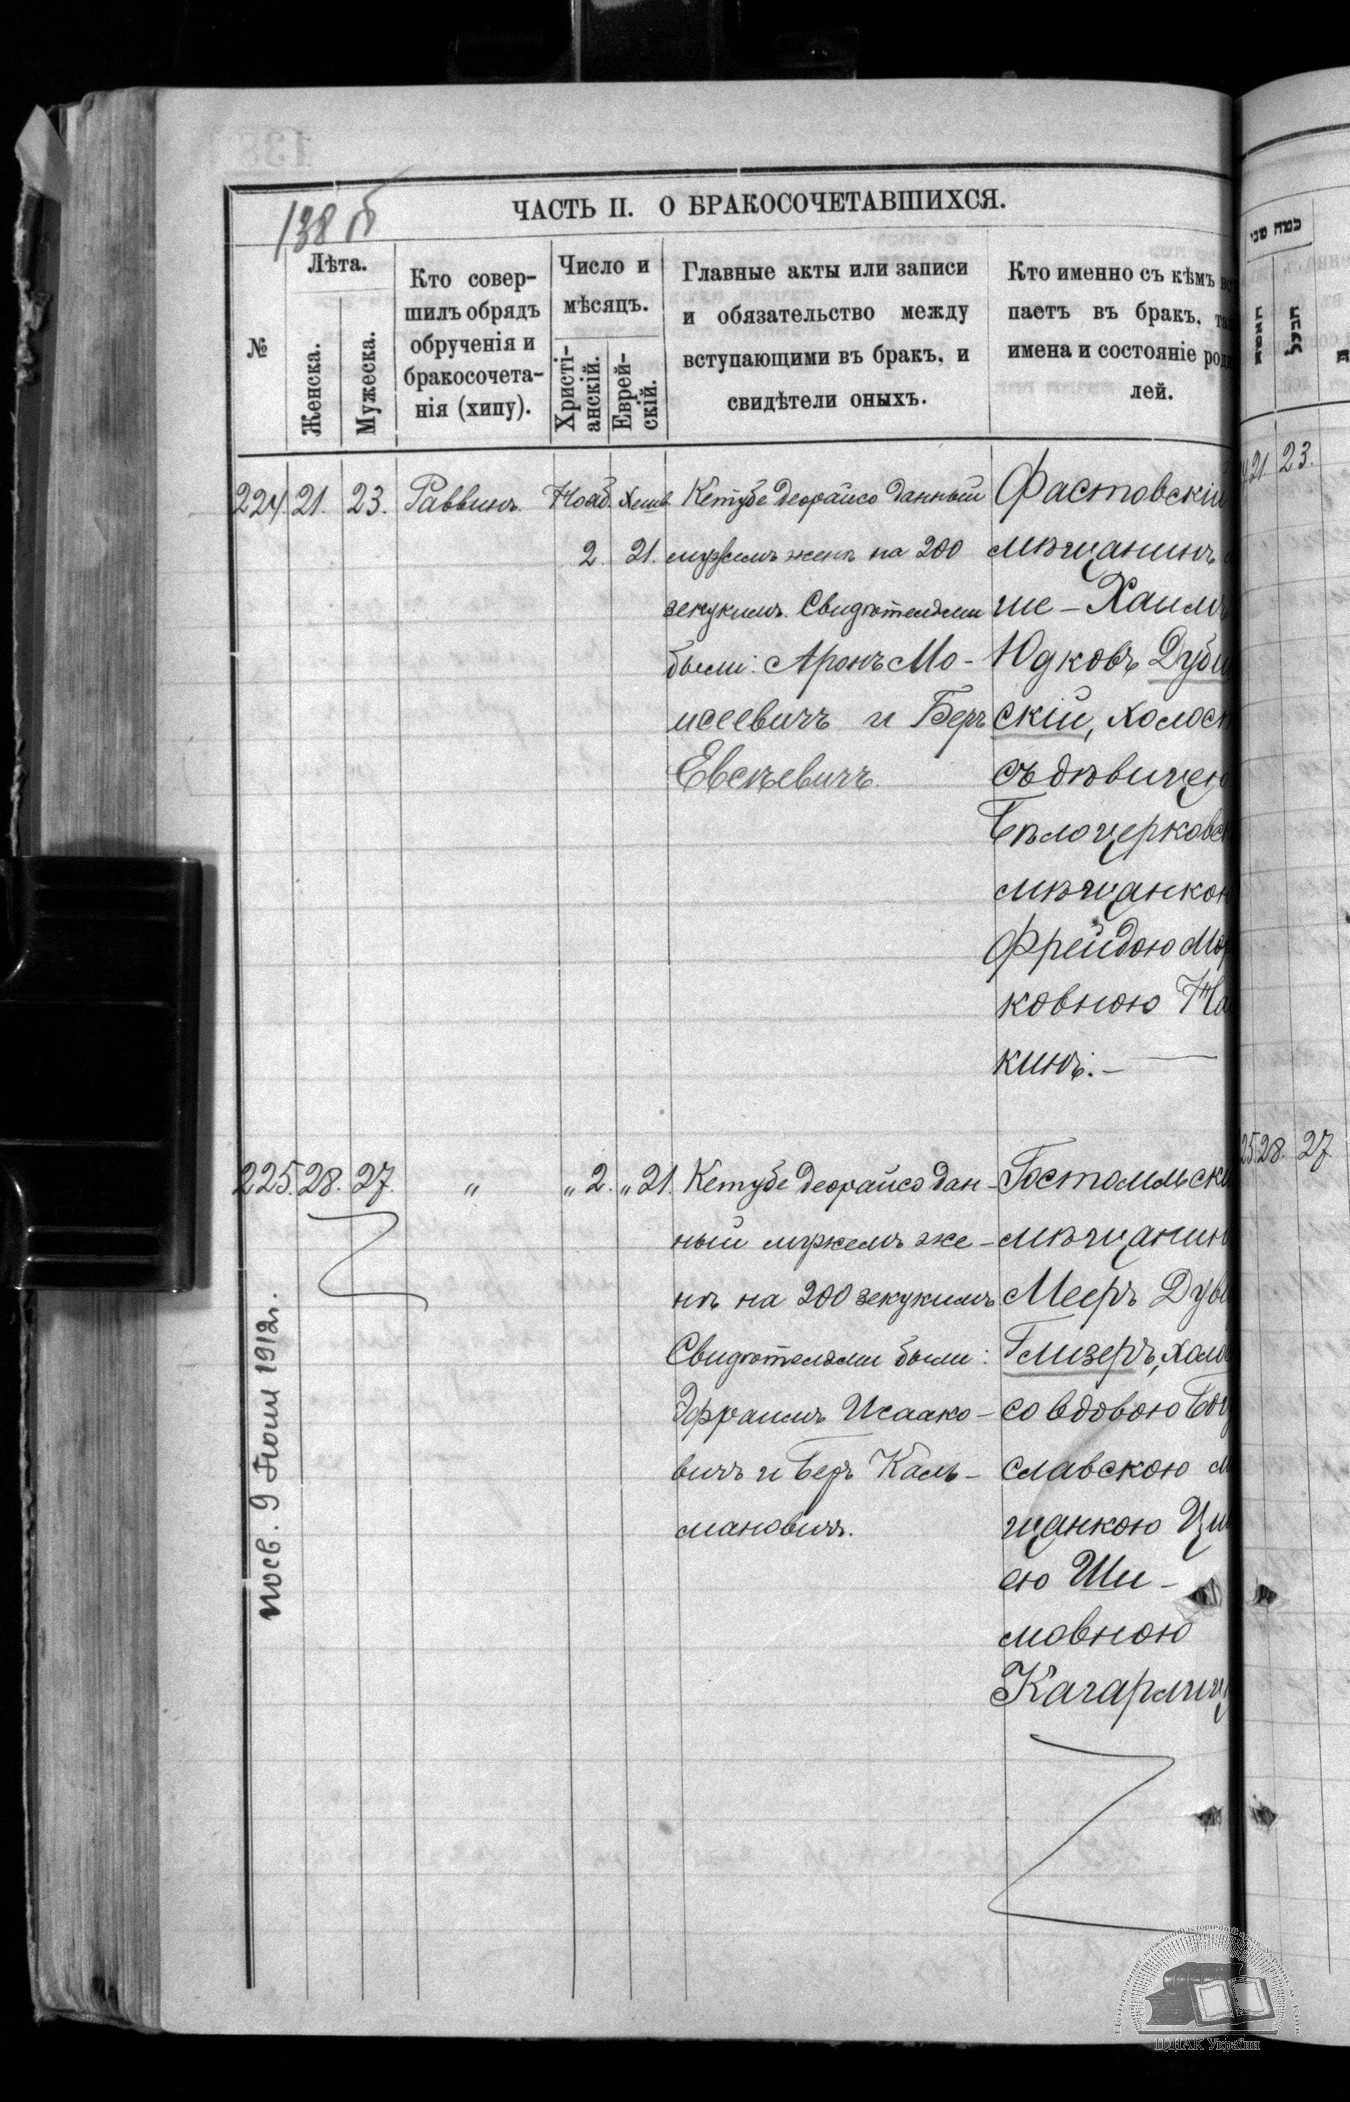 138 об
ЧАСТЬ II. О БРАКОСОЧЕТАВШИХСЯ.
№
Лѣта.
Женска.
Мужеска.
Кто совер-
шилъ обрядъ
обрученія и
бракосочета-
нія (хипу).
Число и
мѣсяцъ.
Христі-
анскій.
Еврей-
скій.
Главные акты или записи
и обязательство между
вступающими въ бракъ, и
свидѣтели оныхъ.
Кто именно съ кѣмъ
паетъ въ бракъ,
имена и состояніе
лей.
224. 21. 23. Раввинъ. Нояб. Хешв. 2. 21.
Кетубе деорайсо данный
мужемъ женѣ на 200
зекукимъ. Свидѣтелями
были: Аронъ Мо-
исеевичъ и Беръ
Евсѣевичъ.
Фастовскій
мѣщанинъ
ше-Хаимъ
Юдковъ Дуби
скій, холост
съ дѣвицею
Бѣлоцерковс
мѣщанкою
Фрейдою Мор
ковною На
кинъ.-
225. 28. 27. " " 2. " 21.
Кетубе деорайсо дан-
ный мужемъ же-
нѣ на 200 зекукимъ
Свидѣтелями были:
Эфраимъ Исаако-
вичъ и Беръ Каль-
мановичъ.
Гостомльскі
мѣщанин
Мееръ Дув
Глизеръ, холо
со вдовою Бог
славскою м
щанкою Ци
ею Ши-
мовною
Кагарлиц
посв. 9 Іюли 1912г.
כמה שני
האשה
הבעל
21 23.
25. 28. 27
ЦДІАК України